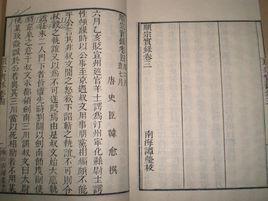 順宗實錄卷三
南海譚瑩校
順宗實錄卷四 起六月盡七月
唐史臣韓愈撰
六月乙亥貶宣州巡官羊士諤為汀州寧化縣尉士諤
性傾躁時以公事至京遇叔文用事朋黨相煽頗不能
平公言其非叔文聞之怒欲下詔斬之執誼不可則令
杖殺之執誼又以為不可遂貶焉由是叔文始大惡執
誼往來二人門下者皆懼先時劉闢以劍南節度副使
將韋皋之意於叔文求都領劍南三川謂叔文曰太尉
使某致微誠於公若與其三川當以死相助若不用某